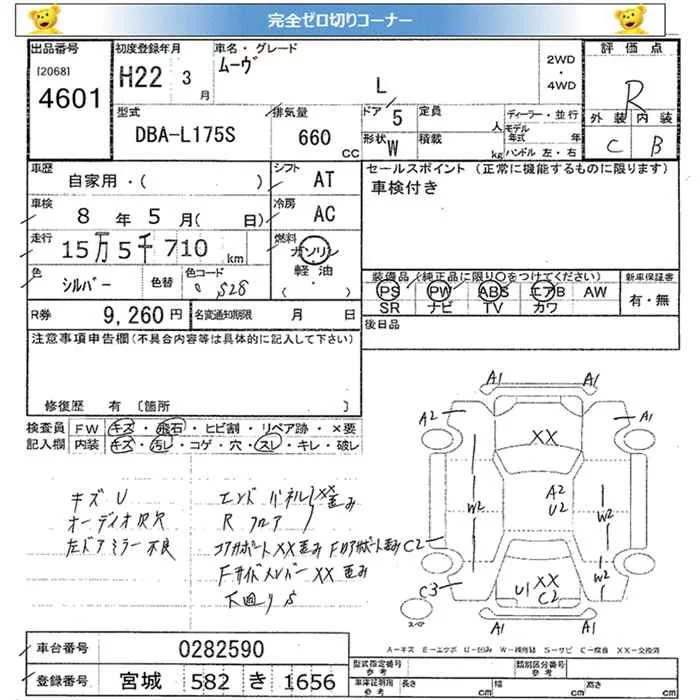 完全ゼロ切りコーナー
出品番号 初度登録年月 車名・グレード 評価点
[2068] H22 3 月 ムーヴ L 2WD・4WD R
4601
型式 排気量 ドア 5 定員 人 ディーラー・並行 外装 内装
DBA-L175S 660 CC 形状 W 積載 kg モデル年式 年 ハンドル 左・右 C B
車歴 自家用・( ) シフト AT セールスポイント (正常に機能するものに限ります)
車検 8 年 5 月( 日) 冷房 AC 車検付き
走行 15万5千710 km 燃料 ガソリン・軽油・( )
色 シルバー 色替 色コード S28
装備品(純正品に限り○をつけてください) 新車保証書
PS PW ABS エアB AW 有・無
SR ナビ TV カワ
R券 9,260円 名変通知期限 月 日 後日品
注意事項申告欄(不具合内容等は具体的に記入して下さい)
修復歴 有 〔箇所 〕
検査員 FW キズ・飛石・ヒビ割・リペア跡・×要
記入欄 内装 キズ・汚レ・コゲ・穴・スレ・キレ・破レ
キズ U エンドパネル XX 歪み
オーディオ欠 R フロア
左ドアミラー不良 コアサポート XX 歪み Fロアサポート歪み
Fサイドメンバー XX 歪み
下廻り S
A1 A1
A2 A1
XX
A2
U2
W2 W2
C2
W2
C3 U1 XX C2
スペア
A1 A1
A-キズ E-エクボ U-凹み W-補修跡 S-サビ C-腐食 XX-交換済
車台番号 0282590
登録番号 宮城 582 き 1656
型式指定番号 参考 類別区分番号 参考
車庫証明用 参考 長さ cm 幅 cm 高さ cm